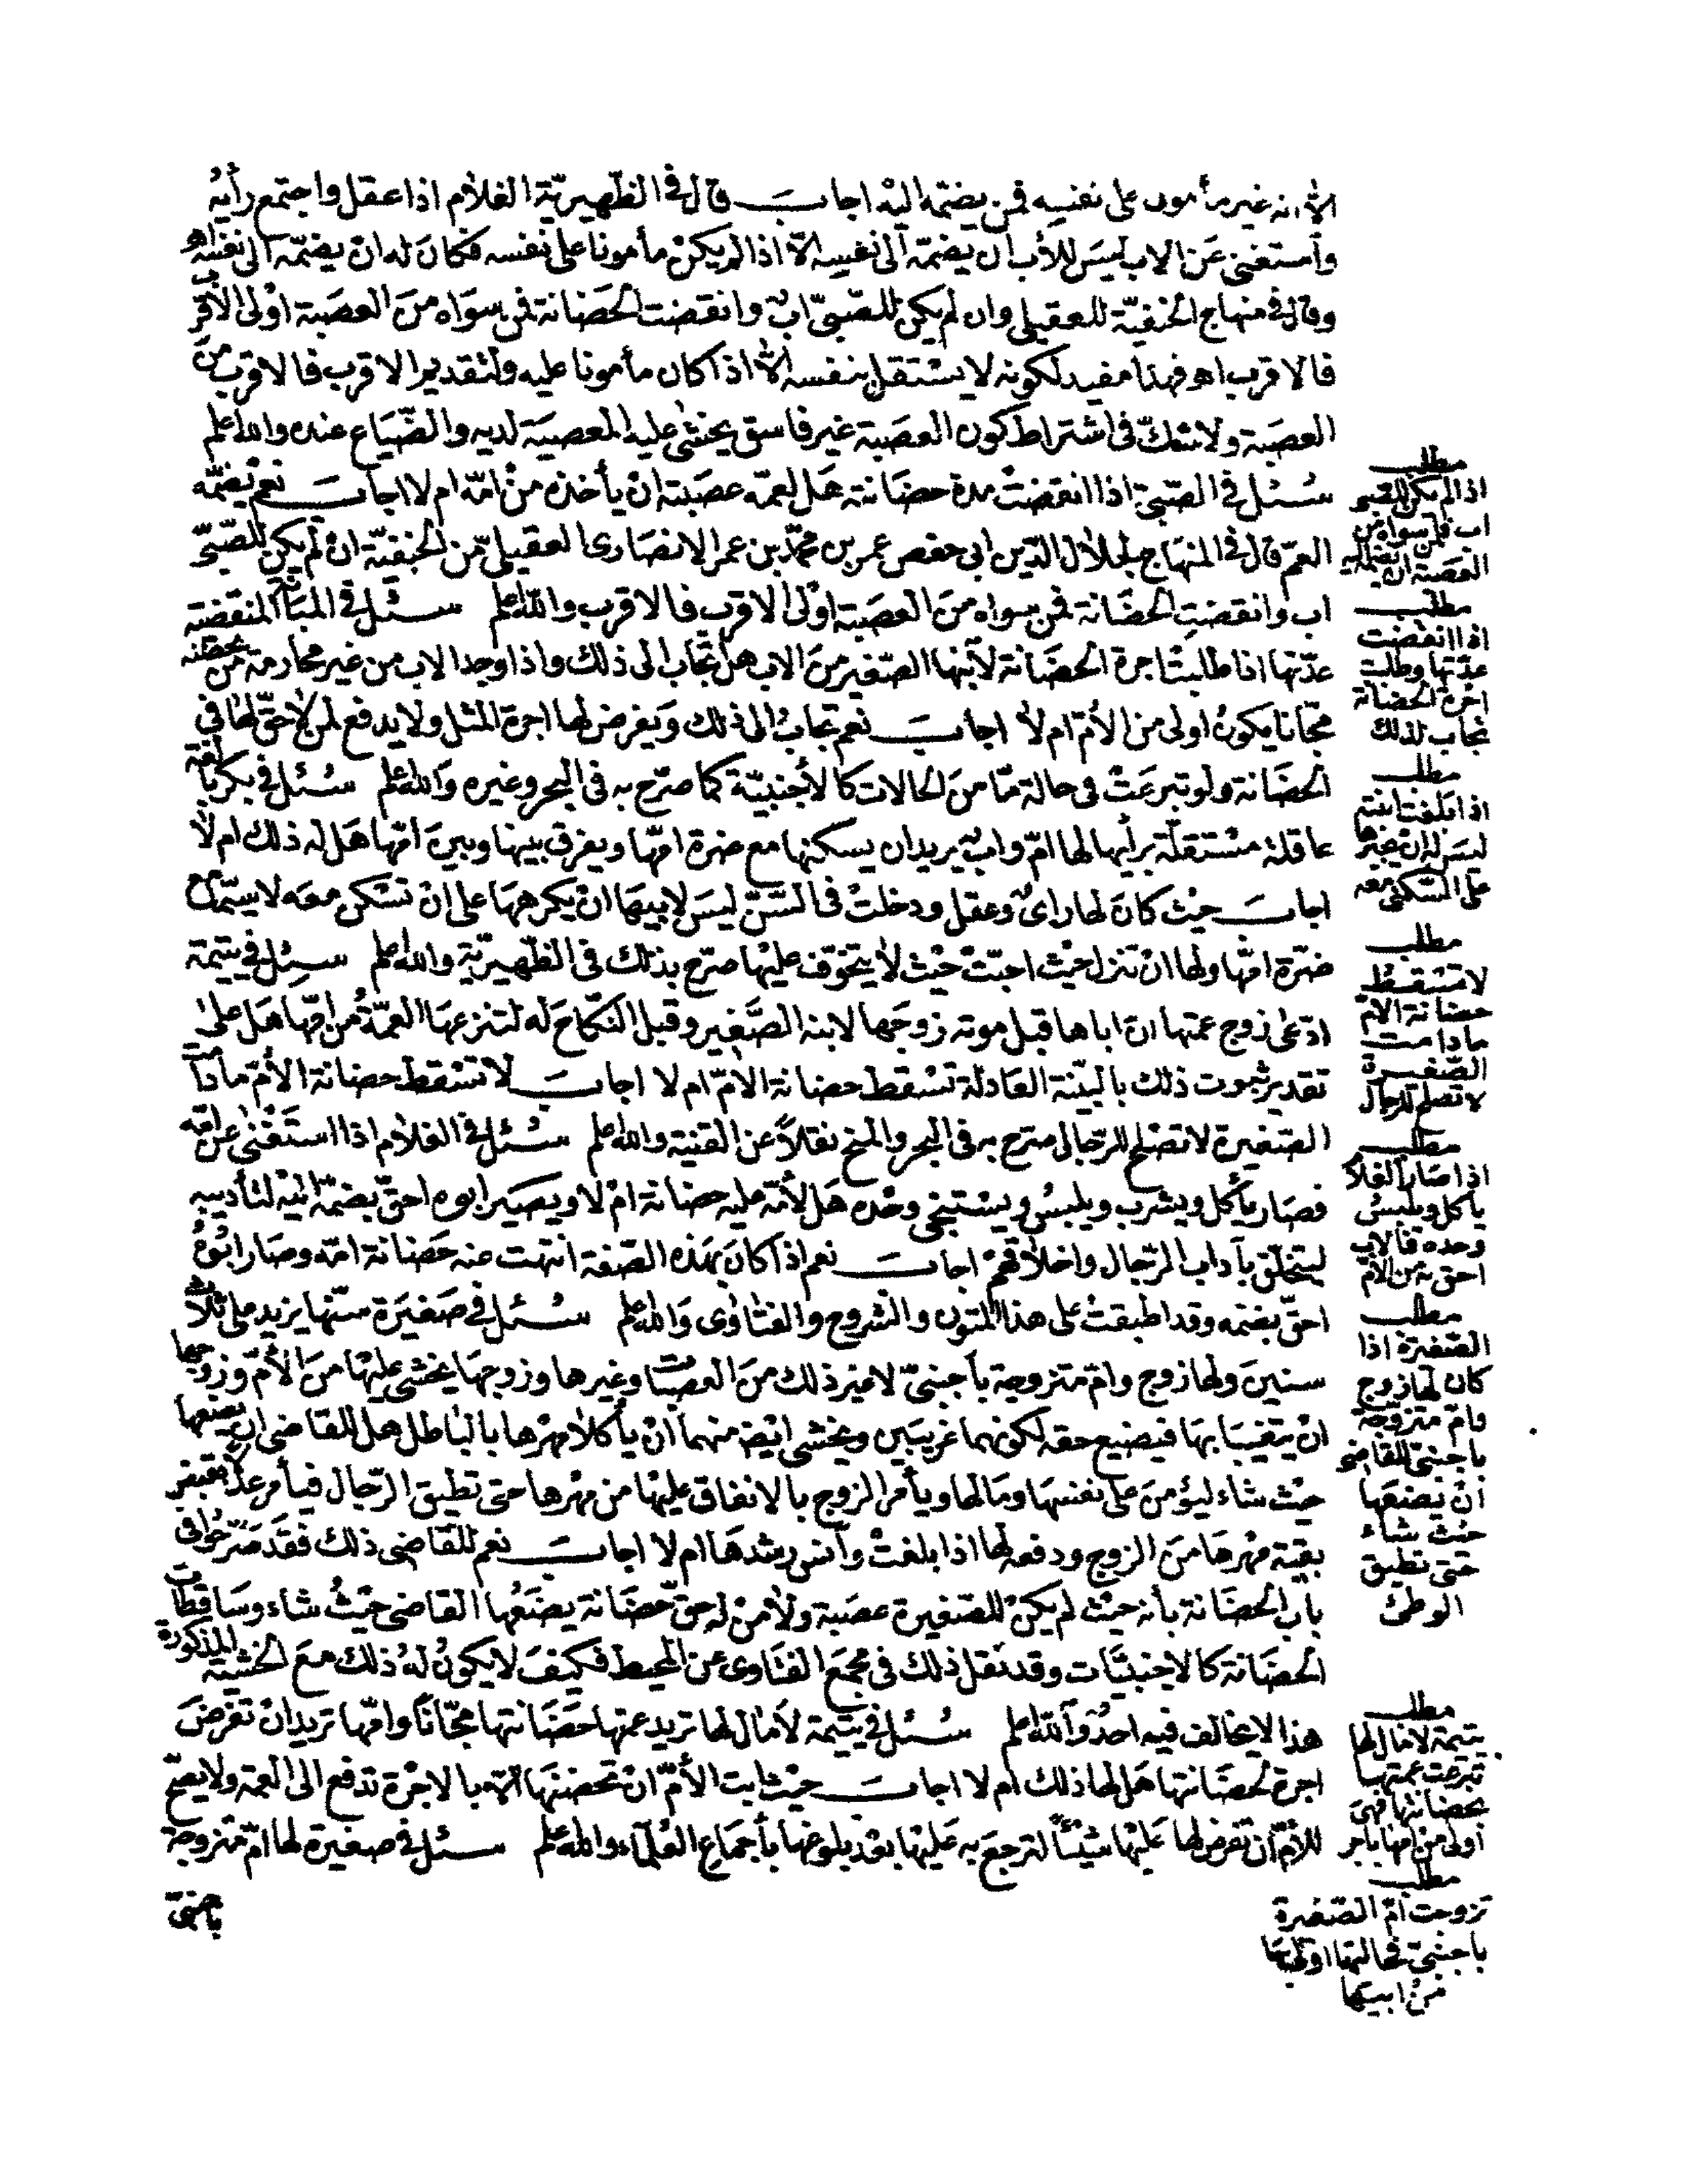 الا انه غير مأمون على نفسه فمن يضمه اليه اجاب قال في الظهيرية الغلام اذا عقل واجتمع رأيه
واستغنى عن الاب ليس للأب ان يضمه الى نفسه الا اذا لم يكن مأمونا على نفسه فكان له ان يضمه الى نفسه اهـ
وقال في منهاج الحنفية للعقيلي وان لم يكن للصبي اب وانقضت الحضانة فمن سواه من العصبة اولى الاقرب
فالاقرب اهـ فهذا مفيد لكونه لا يستقل بنفسه الا اذا كان مأمونا عليه ولتقديم الاقرب فالاقرب من
العصبة ولا شك في اشتراط كون العصبة غير فاسق يخشى عليه المعصية لديه والضياع عنده والله اعلم
سئل في الصبي اذا انقضت مدة حضانته هل لعمه عصبته ان يأخذه من امه ام لا اجاب نعم يضمه
العم قال في المنهاج لجلال الدين ابي حفص عمر بن محمد بن عمر الانصاري العقيلي من الحنفية ان لم يكن للصبي
اب وانقضت الحضانة فمن سواه من العصبة اولى الاقرب فالاقرب والله اعلم سئل في المبانة المنقضية
عدتها اذا طلبت اجرة الحضانة لابنها الصغير من الاب هل تجاب الى ذلك واذا وجد الاب من غير محارمه من يحضنه
مجانا يكون اولى من الأم ام لا اجاب نعم تجاب الى ذلك ويفرض لها اجرة المثل ولا يدفع لمن لا حق لها في
الحضانة ولو تبرعت في حالة ما من الحالات كالأجنبية كما صرح به في البحر وغيره والله اعلم سئل في بكر بالغة
عاقلة مستقلة برأيها لها ام واب يريد ان يسكنها مع ضرة امها ويفرق بينها وبين امها هل له ذلك ام لا
اجاب حيث كان لها رأى وعقل ودخلت في السن ليس لابيها ان يكرهها على ان تسكن معه لا سيما مع
ضرة امها ولها ان تنزل حيث احبت حيث لا يتخوف عليها صرح بذلك في الظهيرية والله اعلم سئل في يتيمة
ادعى زوج عمتها ان اباها قبل موته زوجها لابنه الصغير وقبل النكاح له لتنزعها العمة من امها هل على
تقدير ثبوت ذلك بالبينة العادلة تسقط حضانة الام ام لا اجاب لا تسقط حضانة الأم ما دامت
الصغيرة لا تصلح للرجال صرح به في البحر والمنح نقلا عن القنية والله اعلم سئل في الغلام اذا استغنى عن امه
فصار يأكل ويشرب ويلبس ويستنجى وحده هل لأمه عليه حضانة ام لا ويصير ابوه احق بضمه اليه لتأديبه
ليتخلق بآداب الرجال واخلاقهم اجاب نعم اذا كان بهذه الصفة انتهت عنه حضانة امه وصار ابوه
احق بضمه وقد اطبقت على هذا المتون والشروح والفتاوى والله اعلم سئل في صغيرة سنها يزيد على ثلاث
سنين ولها زوج وام متزوجة بأجنبي لا غير ذلك من العصبات وغيرها وزوجها يخشى عليها من الأم وزوجها
ان يتغيبا بها فيضيع حقه لكونهما غريبين ويخشى ايضا منهما ان يأكلا مهرها بالباطل هل للقاضي ان يضعها
حيث شاء ليؤمن على نفسها ومالها ويأمر الزوج بالانفاق عليها من مهرها حتى تطيق الرجال فيأمر عدلا بقبض
بقية مهرها من الزوج ودفعه لها اذا بلغت وآنس رشدها ام لا اجاب نعم للقاضي ذلك فقد صرحوا في
باب الحضانة بأنه حيث لم يكن للصغيرة عصبة ولا من له حق حضانة يضعها القاضي حيث شاء وساقطات
الحضانة كالاجنبيات وقد نقل ذلك في مجمع الفتاوى عن المحيط فكيف لا يكون له ذلك مع الخشية المذكورة
هذا لا يخالف فيه احد والله اعلم سئل في يتيمة لا مال لها تريد عمتها حضانتها مجانا وامها تريد ان تفرض
اجرة لحضانتها هل لها ذلك ام لا اجاب حيث ابت الأم ان تحضنها الا بالاجرة تدفع الى العمة ولا يصح
للأم ان تفرض لها عليها شيئا لترجع به عليها بعد بلوغها بأجماع العلماء والله اعلم سئل في صغيرة لها ام متزوجة
بأجنبي
مطلب
اذا لم يكن للصبي
اب فلمن سواه من
العصبة ان يضمه اليه
مطلب
اذا انقضت
عدتها وطلبت
اجرة الحضانة
تجاب لذلك
مطلب
اذا بلغت ابنته
ليس له ان يجبرها
على السكنى معه
مطلب
لا تسقط
حضانة الام
ما دامت
الصغيرة
لا تصلح للرجال
مطلب
اذا صار الغلام
يأكل ويلبس
وحده فالاب
احق به من الام
مطلب
الصغيرة اذا
كان لها زوج
وام متزوجة
باجنبي للقاضي
ان يضعها
حيث شاء
حتى تطيق
الوطئ
مطلب
يتيمة لا مال لها
تبرعت عمتها
بحضانتها فهي
اولى من امها باجر
مطلب
تزوجت ام الصغيرة
باجنبي فخالتها اولى بها
من ابيها